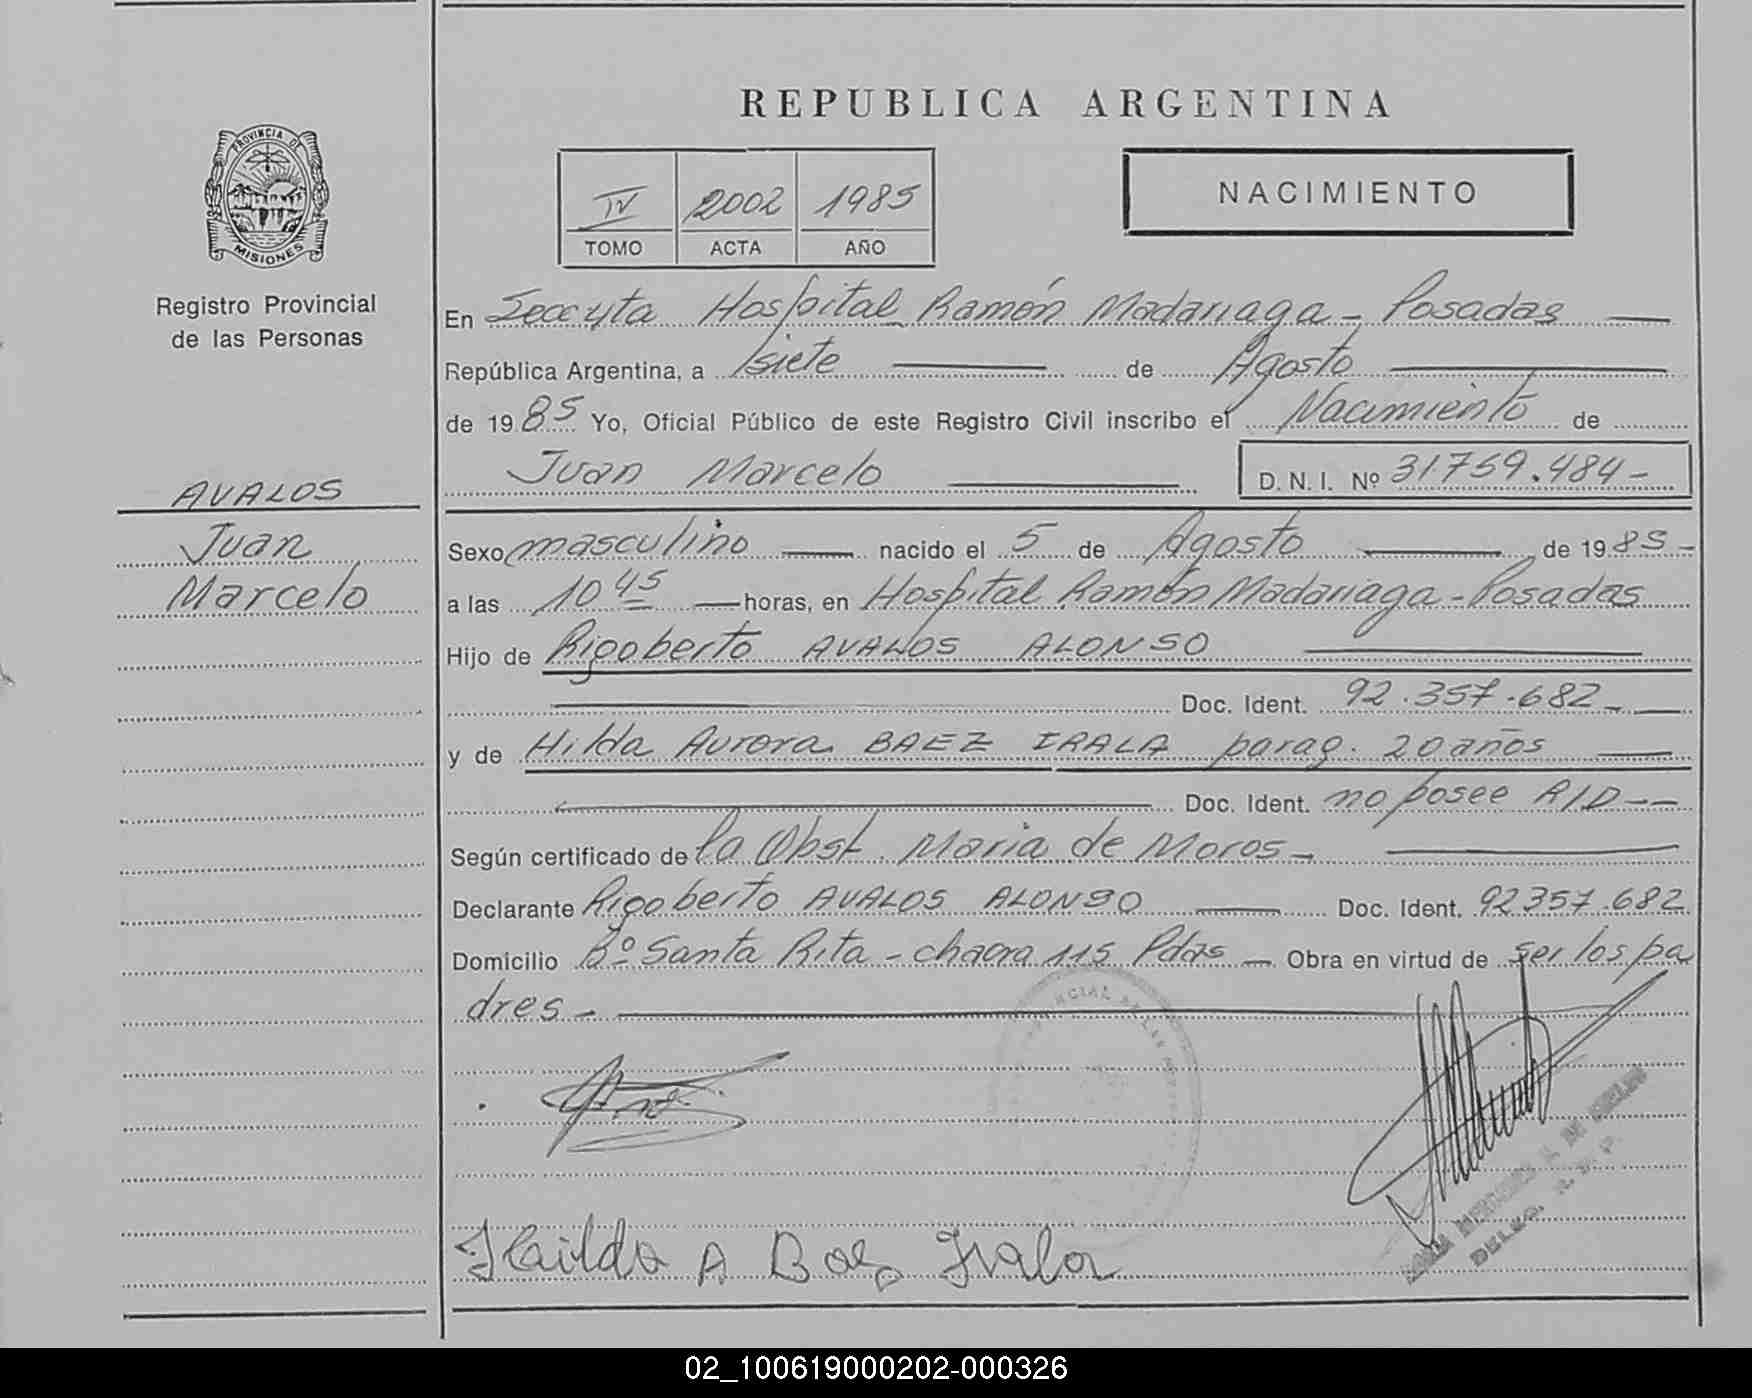 REPUBLICA ARGENTINA
PROVINCIA DE
MISIONES
Registro Provincial
de las Personas
IV 2002 1985
TOMO ACTA AÑO
NACIMIENTO
En Seccyta Hospital Ramón Madariaga - Posadas
República Argentina, a siete de Agosto
de 1985 Yo, Oficial Público de este Registro Civil inscribo el Nacimiento de
Juan Marcelo D.N.I. Nº 31759.484-
AVALOS
Juan
Marcelo
Sexo masculino nacido el 5 de Agosto de 1985-
a las 10 45 horas, en Hospital Ramón Madariaga - Posadas
Hijo de Rigoberto AVALOS ALONSO
Doc. Ident. 92.357.682-
y de Hilda Aurora BAEZ IRALA parag. 20 años
Doc. Ident. no posee A/D--
Según certificado de la Obst. Maria de Moros-
Declarante Rigoberto AVALOS ALONSO Doc. Ident. 92357.682
Domicilio Bº Santa Rita - chacra 115 Pdas - Obra en virtud de ser los pa
dres -
Hilda A Baez Irala
DELEG. R. P. P.
02_100619000202-000326